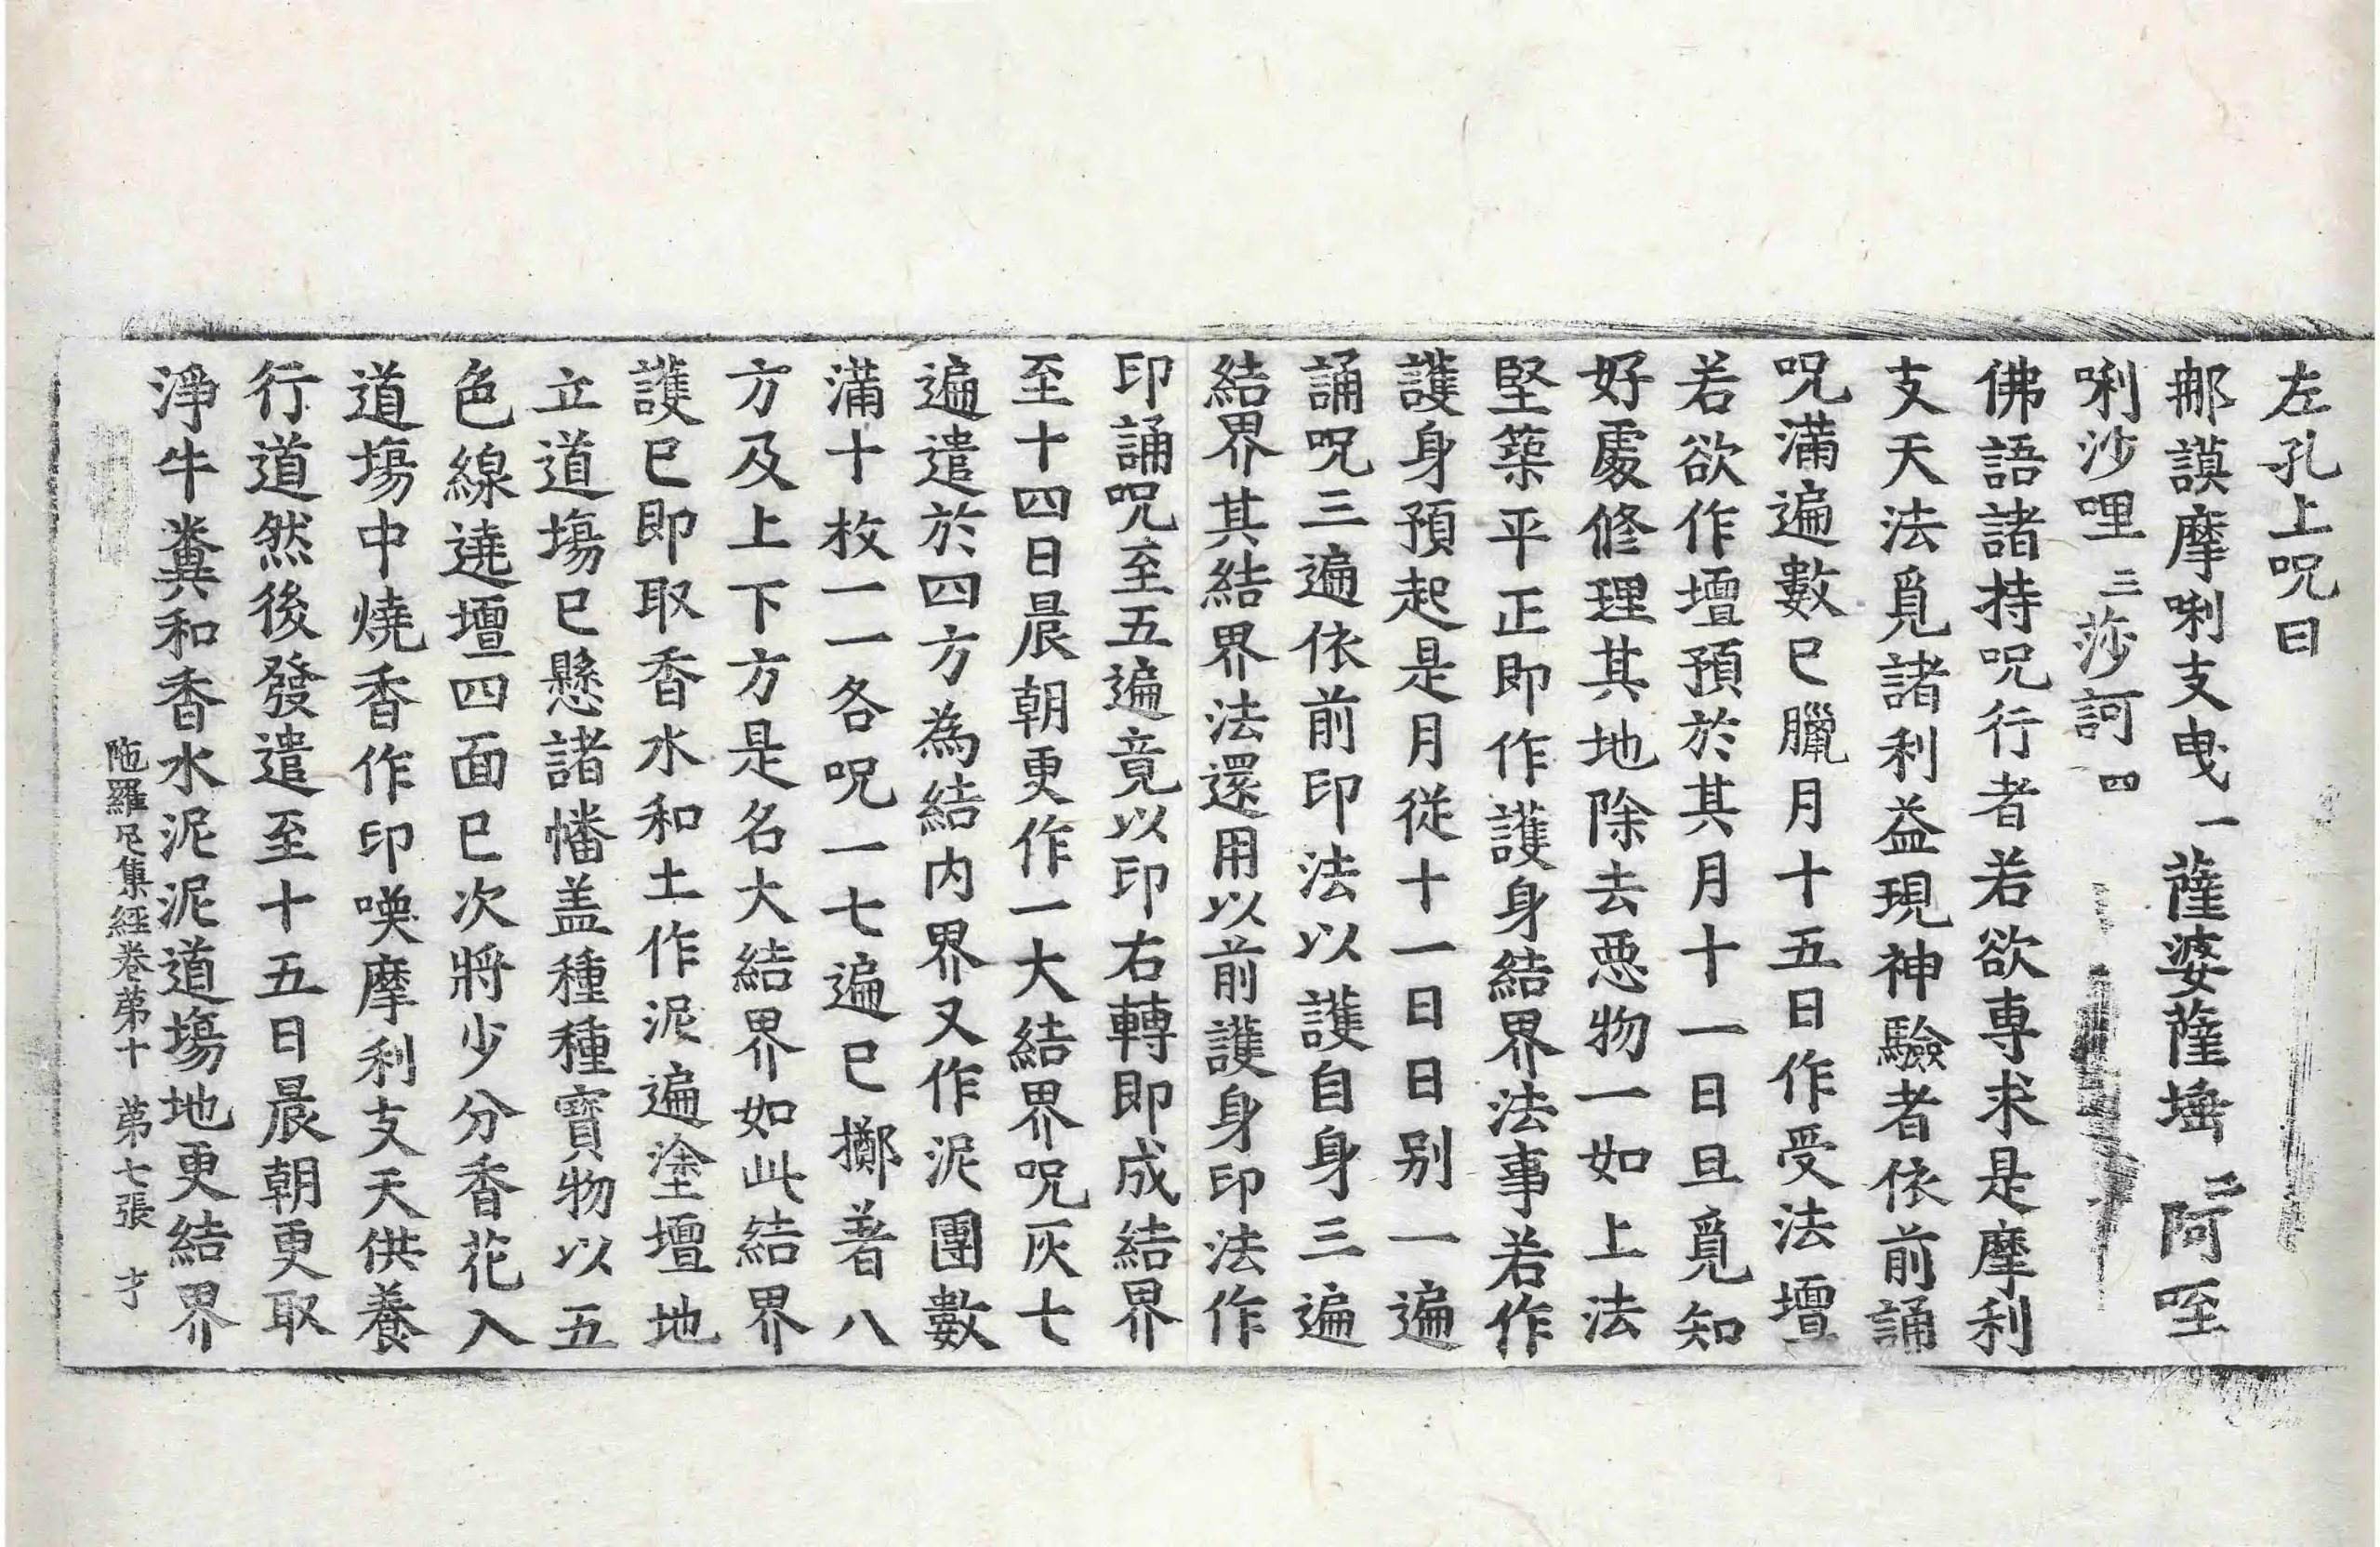 左孔上呪曰
那謨摩唎支曳一薩婆薩埵二阿㗌
唎沙哩三莎訶四
佛語諸持呪行者若欲專求是摩利
支天法覓諸利益現神驗者依前誦
呪滿遍數已臘月十五日作受法壇
若欲作壇預於其月十一日旦覓知
好處修理其地除去惡物一如上法
堅築平正即作護身結界法事若作
護身預起是月從十一日日別一遍
誦呪三遍依前印法以護自身三遍
結界其結界法還用以前護身印法作
印誦呪至五遍竟以印右轉即成結界
至十四日晨朝更作一大結界呪灰七
遍遣於四方為結內界又作泥團數
滿十枚一一各呪一七遍已擲著八
方及上下方是名大結界如此結界
護已即取香水和土作泥遍塗壇地
立道場已懸諸幡盖種種寶物以五
色線遶壇四面已次將少分香花入
道塲中燒香作印㗛摩利支天供養
行道然後發遣至十五日晨朝更取
淨牛糞和香水泥泥道塲地更結界
陁羅尼集經卷第十 第七張 才